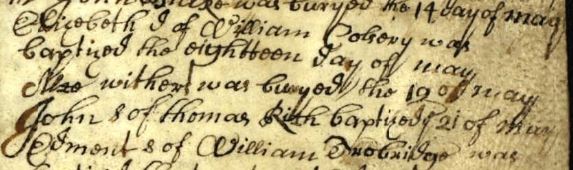 was buryed the 14 day of may
Elizebeth d of William was
baptized the eightteen day of may
withers was buryed the 19 of may
John s of thomas baptized 21 of may
Edment s of William Trobridge was